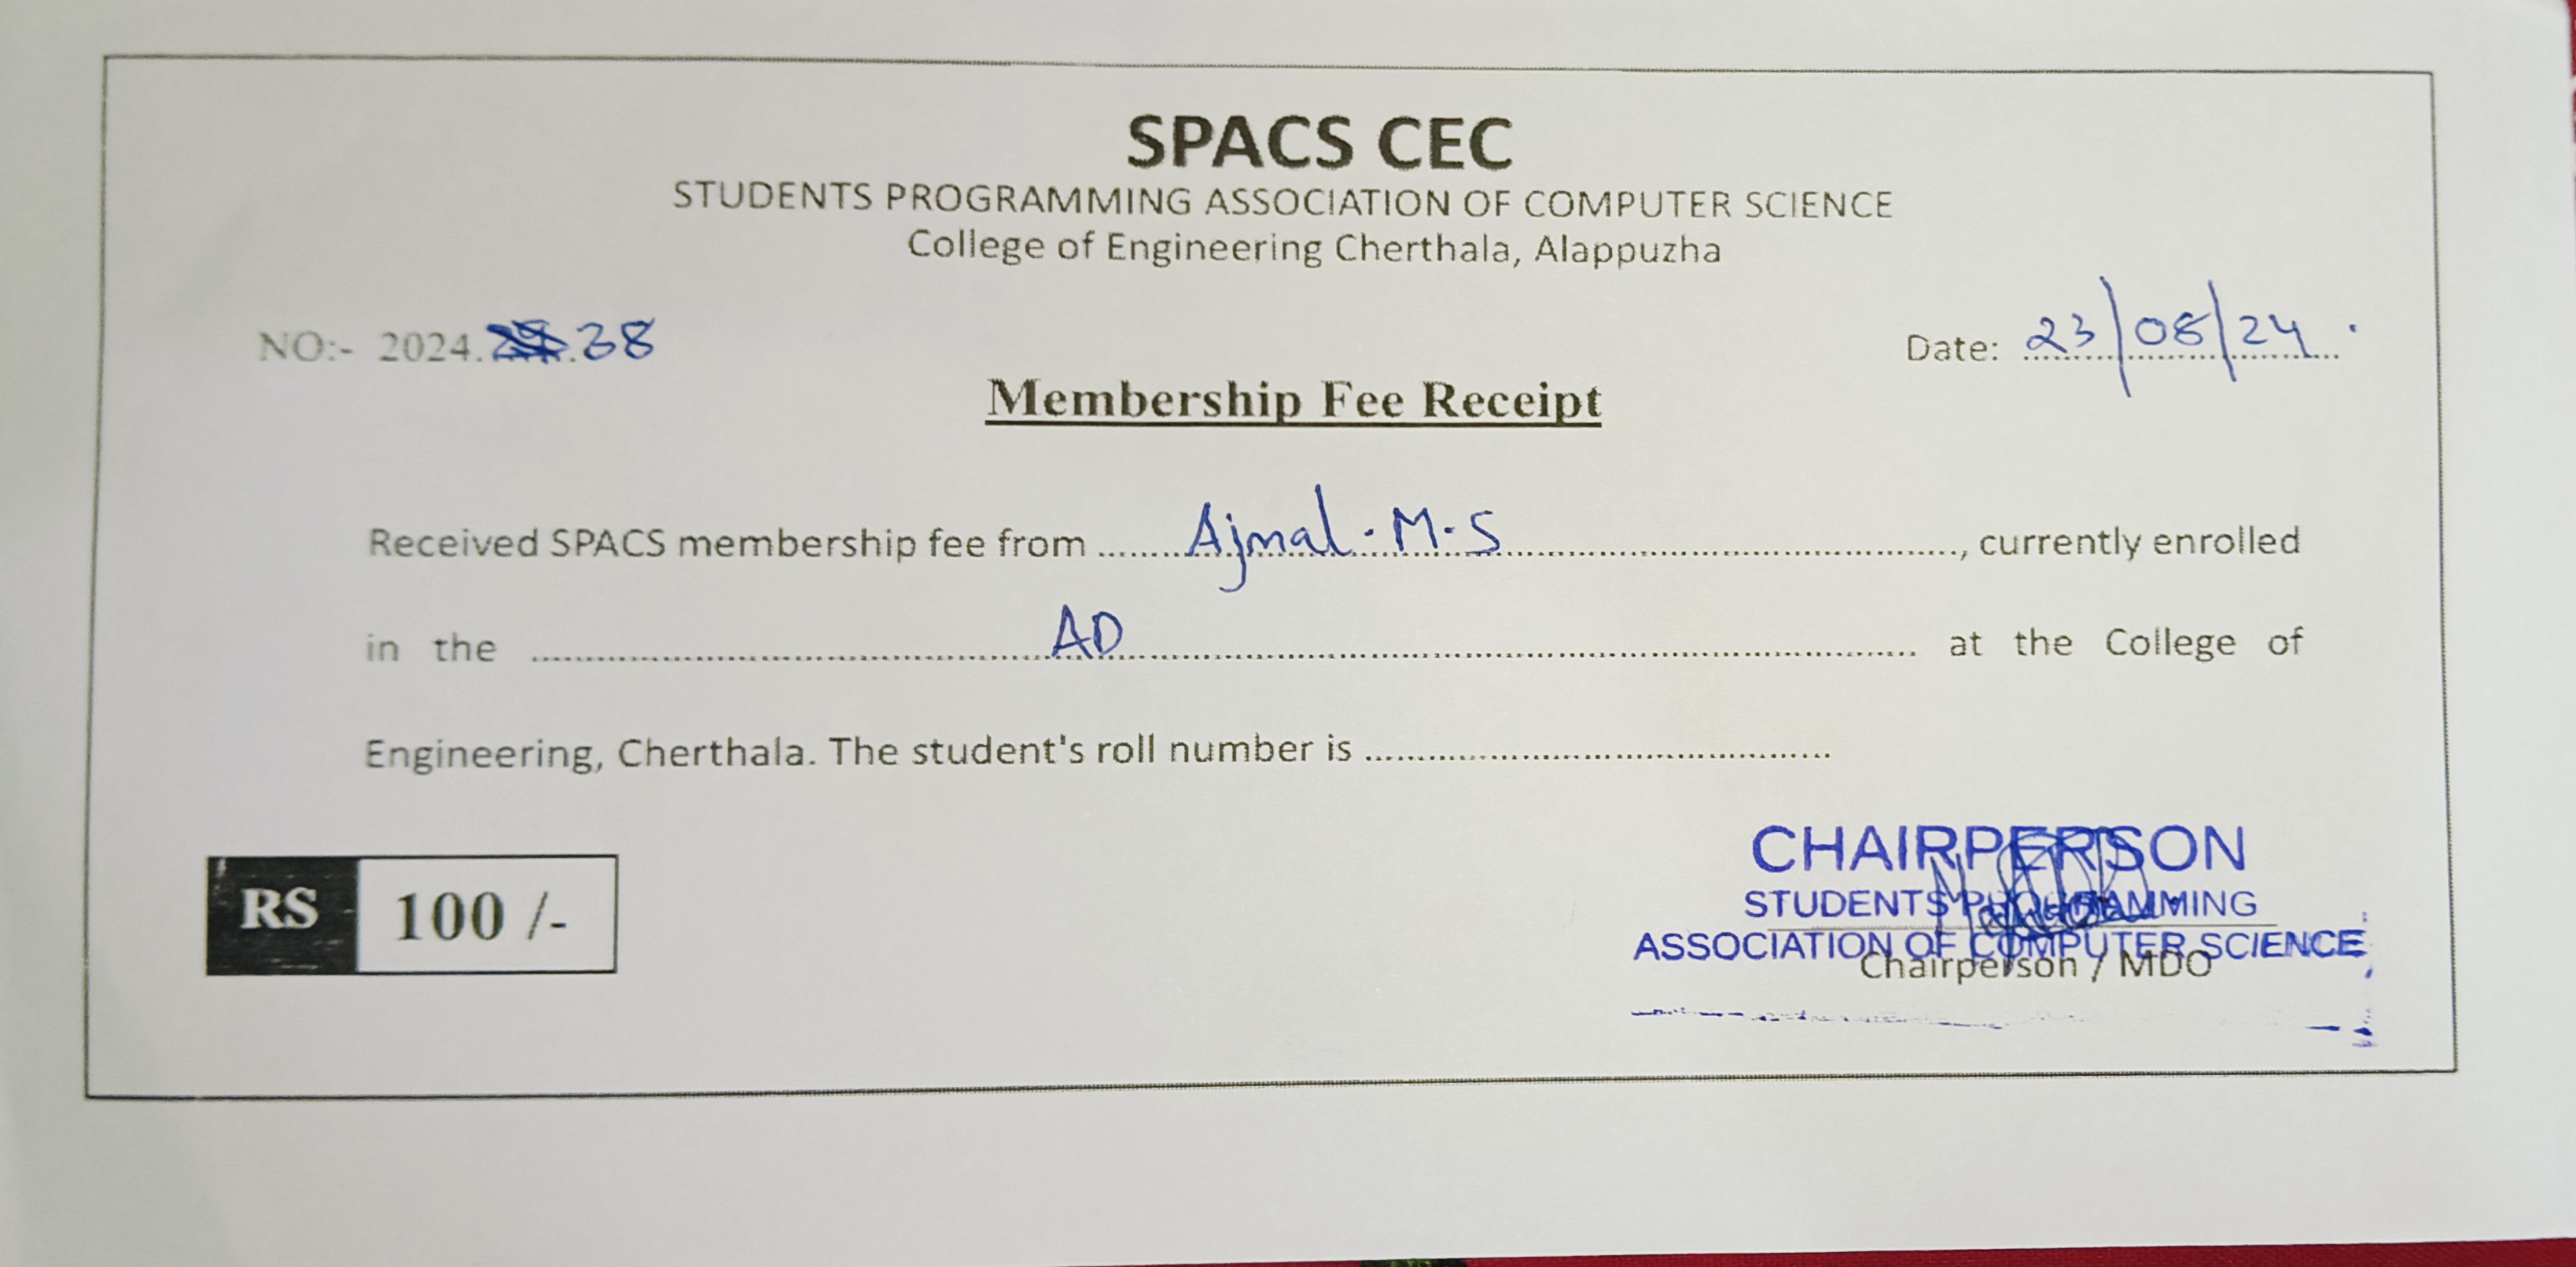 SPACS CEC
STUDENTS PROGRAMMING ASSOCIATION OF COMPUTER SCIENCE
College of Engineering Cherthala, Alappuzha
NO:- 2024. .38
Date: 23/08/24.
Membership Fee Receipt
Received SPACS membership fee from Ajmal.M.S, currently enrolled
in the AD at the College of
Engineering, Cherthala. The student's roll number is
RS 100 /-
CHAIRPERSON
STUDENTS PROGRAMMING
ASSOCIATION OF COMPUTER SCIENCE
Chairperson / MDO